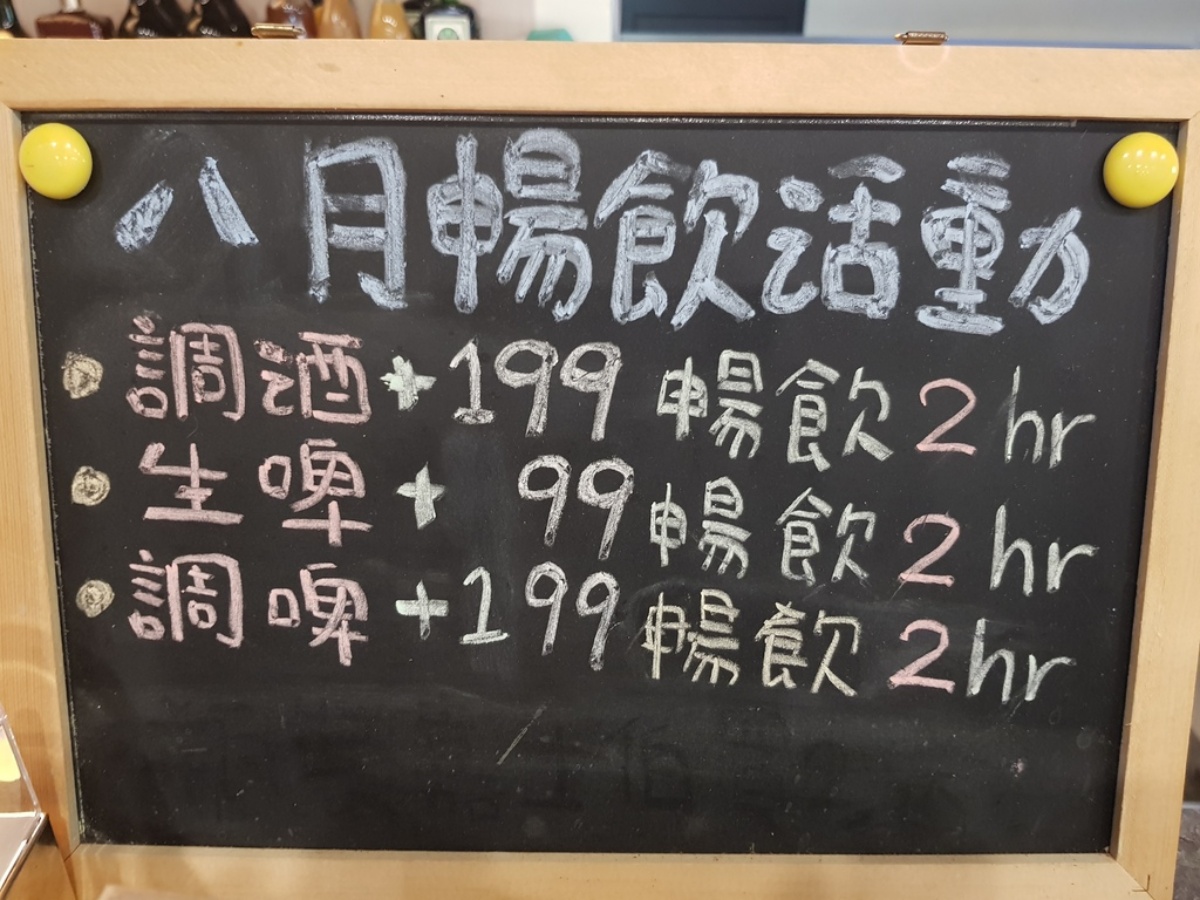 八月暢飲活動
調酒+199 暢飲 2 hr
生啤+ 99 暢飲 2 hr
調啤+199 暢飲 2hr